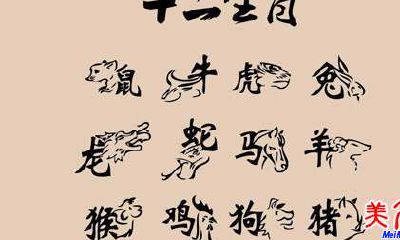 十二生肖
鼠 牛 虎 兔
龙 蛇 马 羊
猴 鸡 狗 猪
美
MeiN